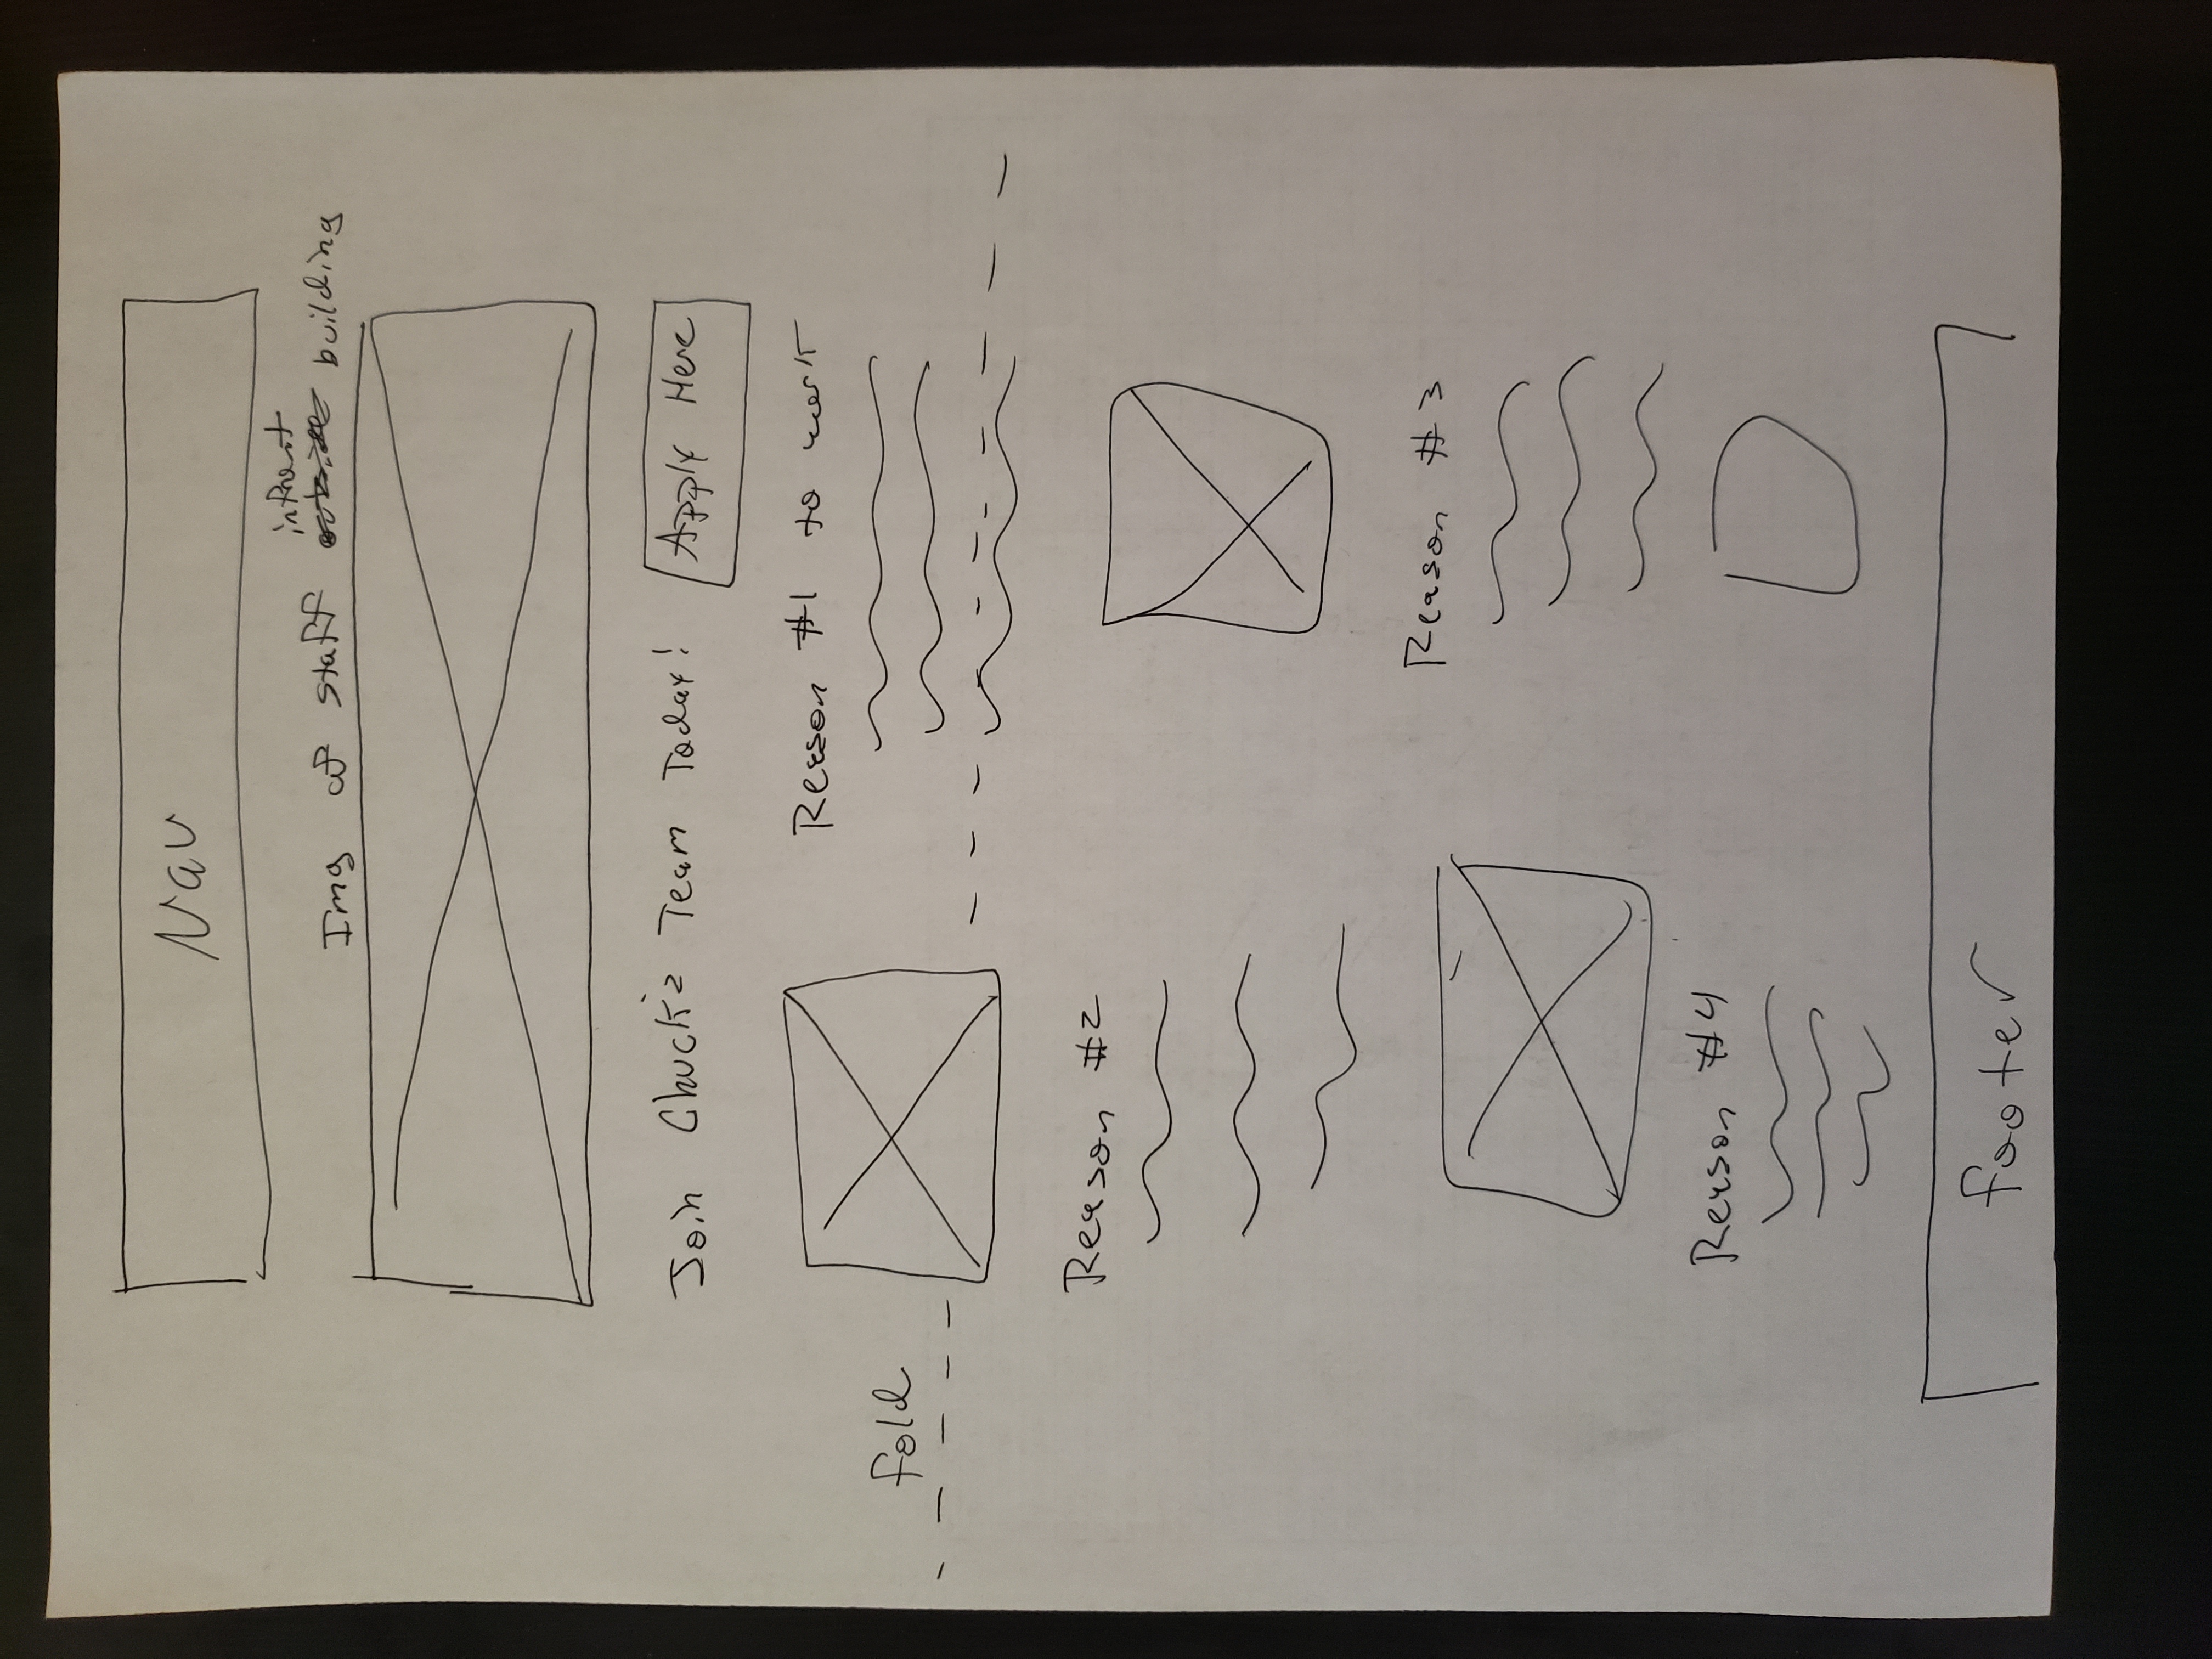 Nav
infront
Img of staff building
Join Chuck's Team Today!
Apply Here
Reason #1 to work
fold
Reason #2
Reason #3
Reason #4
footer